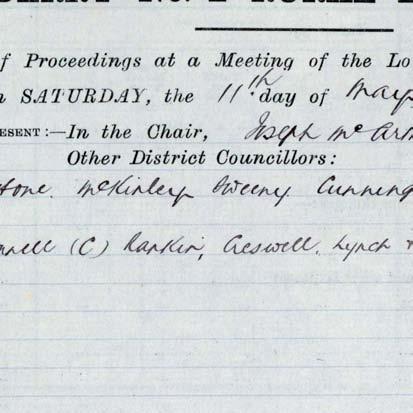 of Proceedings at a Meeting of the Lo
n SATURDAY, the 11th day of May
RESENT:—In the Chair, Joseph McArm
Other District Councillors:
stone. McKinley Sweeny Cunning
nnell (C) Rankin, Creswell. Lynch